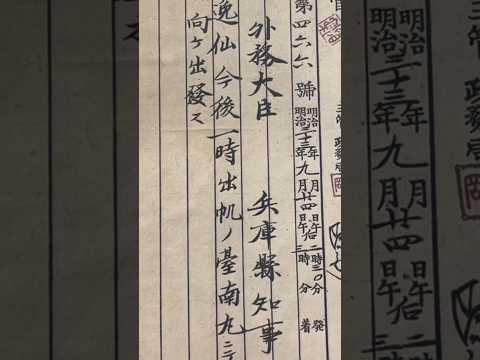 政務局
第四六六號
明治三十三年九月廿四日午后二時三〇分發
明治三十三年九月廿四日午后三時 分着
外務大臣 兵庫縣知事
逸仙今後一時出帆ノ臺南丸ニテ
向ケ出發ス